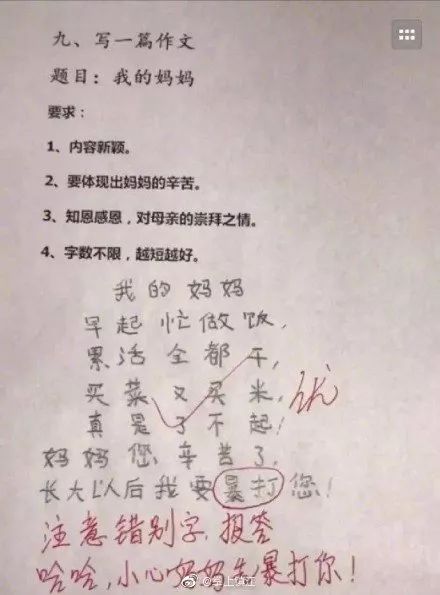 九、写一篇作文
题目：我的妈妈
要求：
1、内容新颖。
2、要体现出妈妈的辛苦。
3、知恩感恩，对母亲的崇拜之情。
4、字数不限，越短越好。
我的妈妈
早起忙做饭，
累活全都干，
买菜又买米，
真是了不起！
优
妈妈您辛苦了，
长大以后我要暴打您！
注意错别字，报答
哈哈，小心妈妈先暴打你！
@掌上镇江